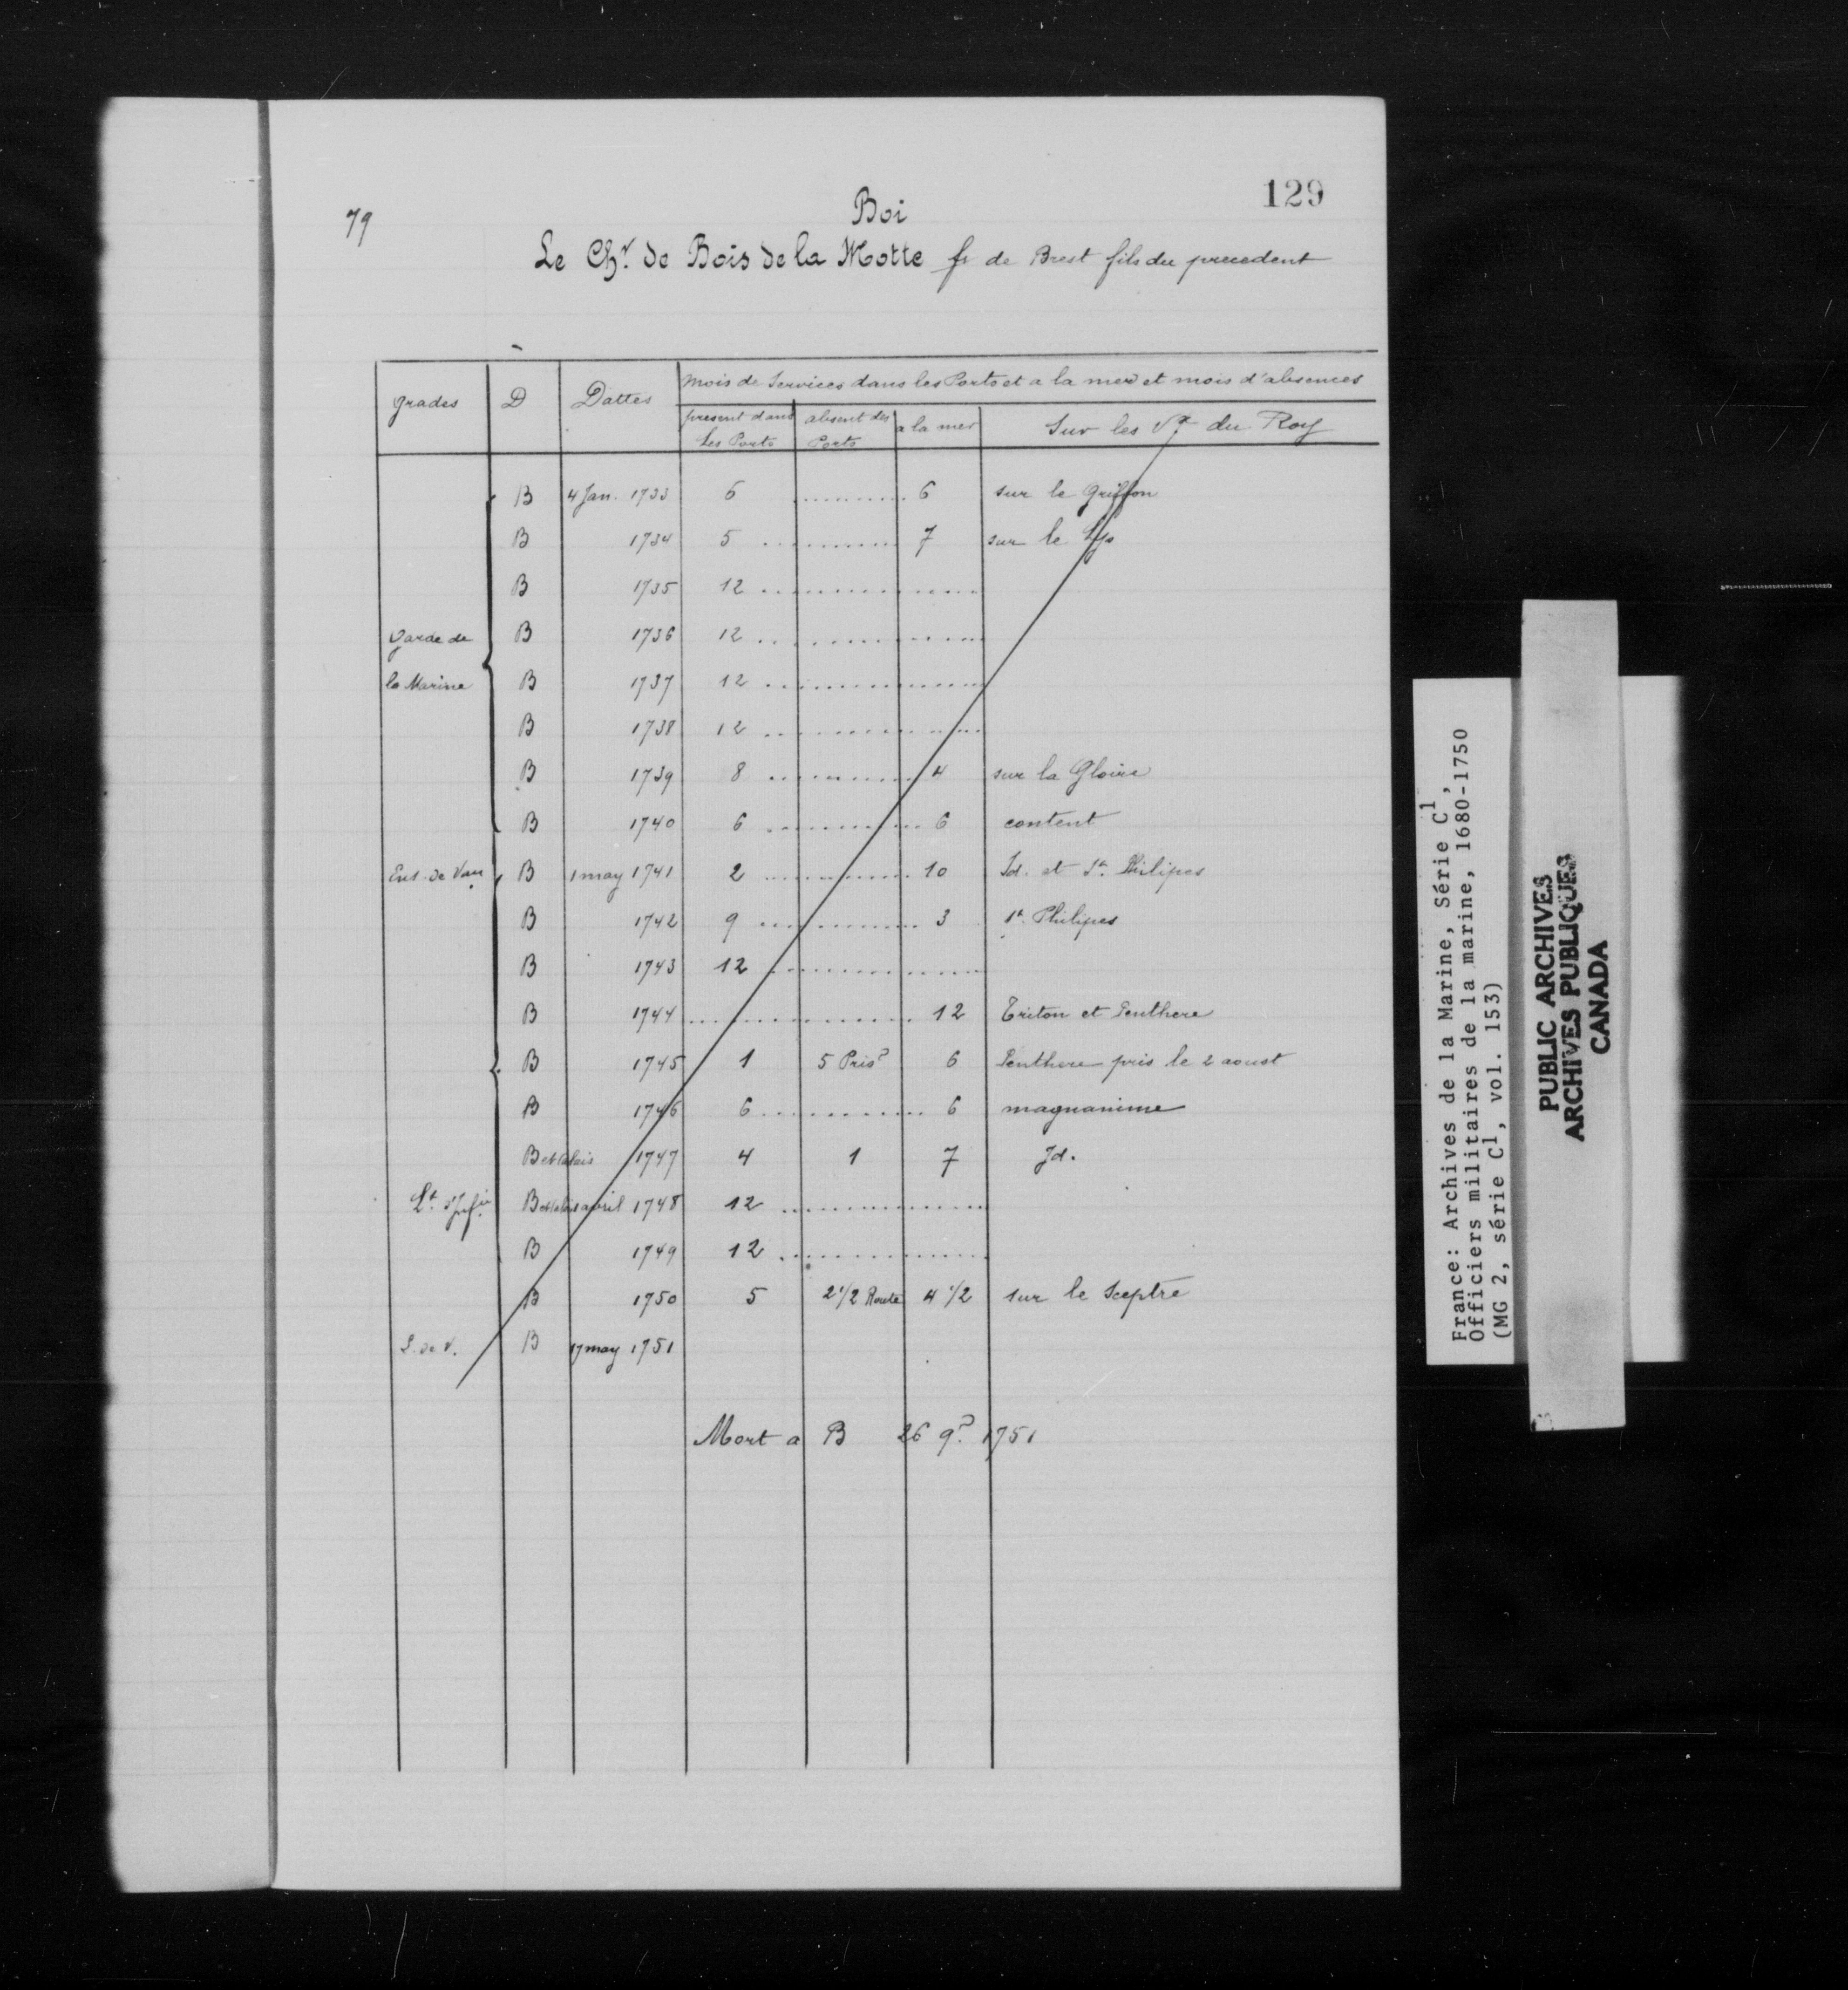 129
79
Boi
Le Chr. de Bois de la Motte fr de Brest fils du precedent
mois de Services dans les Ports et a la mer et mois d'absences
grades D Dattes present dans Les Ports absent des Ports a la mer Sur les Vx du Roy
B 4 Jan. 1733 6 .......... 6 sur le Griffon
B 1734 5 .......... 7 sur le Lys
B 1735 12 ..........
garde de B 1736 12 ..........
la Marine B 1737 12 ..........
B 1738 12 ..........
B 1739 8 .......... 4 sur la Gloire
B 1740 6 .......... 6 content
Ens. de Vau B 1 may 1741 2 .......... 10 Id. et St. Philipes
B 1742 9 .......... 3 St. Philipes
B 1743 12 ..........
B 1744 .......... 12 Triton et Penthere
B 1745 1 5 Pris? 6 Penthere pris le 2 aoust
B 1746 6 .......... 6 magnanime
B et Calais 1747 4 1 7 Id.
Lt. d'Infie B et Calais 1 avril 1748 12 ..........
B 1749 12 ..........
B 1750 5 2 1/2 Route 4 1/2 sur le Sceptre
L. de V. B 17 may 1751
Mort a B 26 9? 1751
France: Archives de la Marine, Série C1,
Officiers militaires de la marine, 1680-1750
(MG 2, série C1, vol. 153)
PUBLIC ARCHIVES
ARCHIVES PUBLIQUES
CANADA